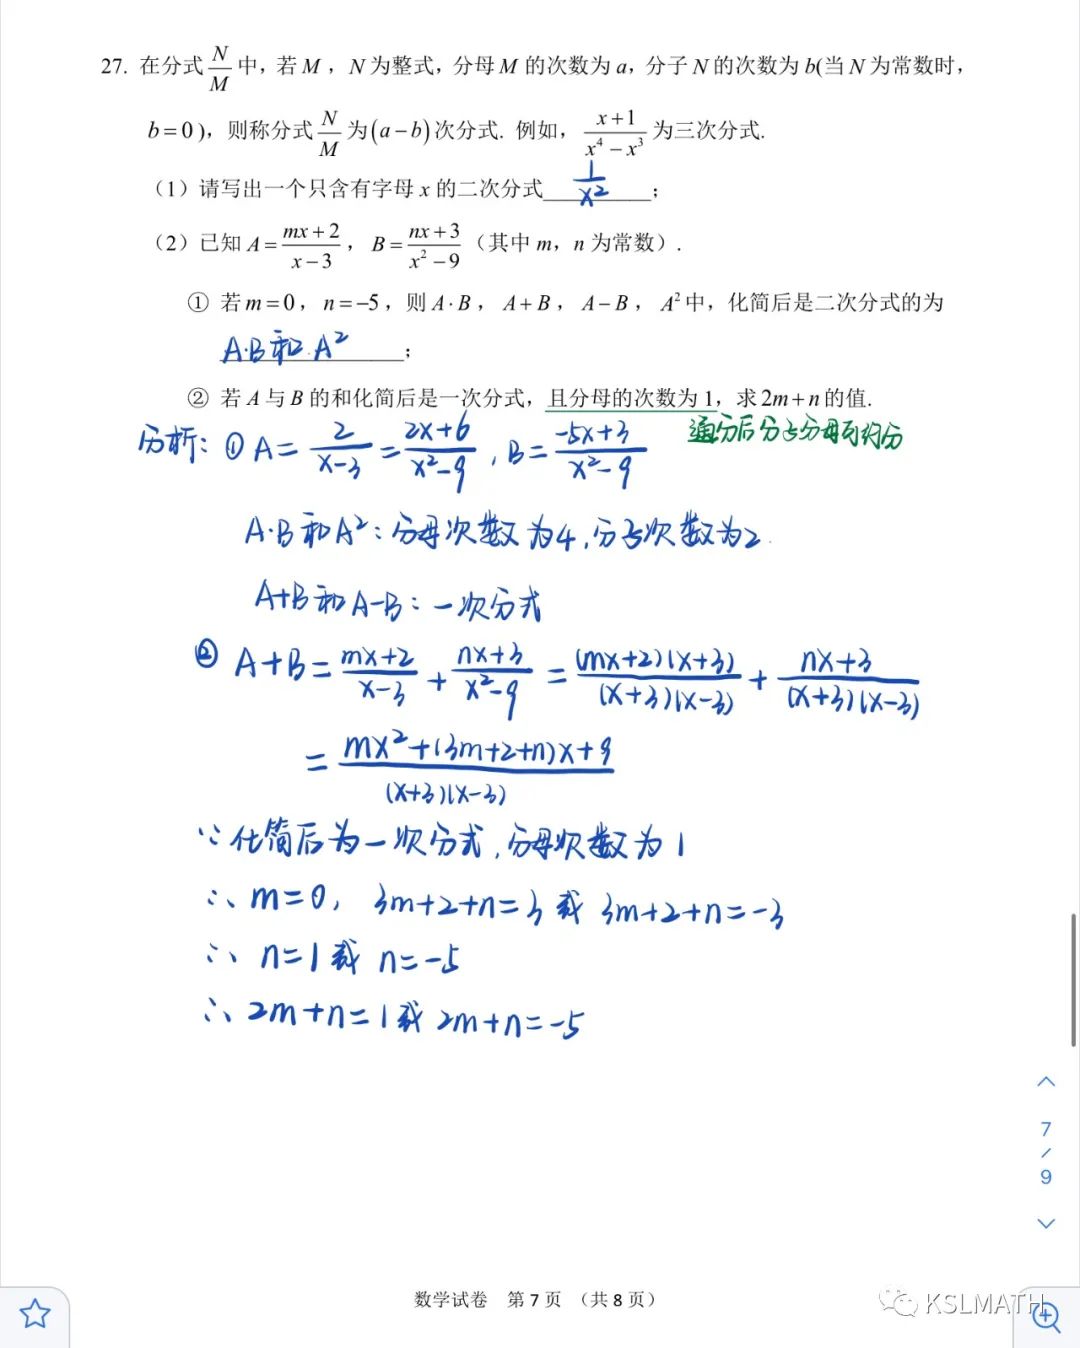 27. 在分式 N/M 中，若 M，N 为整式，分母 M 的次数为 a，分子 N 的次数为 b(当 N 为常数时，
b=0)，则称分式 N/M 为 (a−b) 次分式. 例如，(x+1)/(x⁴−x³) 为三次分式.
（1）请写出一个只含有字母 x 的二次分式 1/x² ；
（2）已知 A=(mx+2)/(x−3)，B=(nx+3)/(x²−9)（其中 m，n 为常数）.
① 若 m=0，n=−5，则 A·B，A+B，A−B，A² 中，化简后是二次分式的为
A·B和A² ；
② 若 A 与 B 的和化简后是一次分式，且分母的次数为 1，求 2m+n 的值.
通分后分子分母可约分
分析：① A=2/(x-3)=(2x+6)/(x²-9), B=(-5x+3)/(x²-9)
A·B和A²：分母次数为4,分子次数为2.
A+B和A-B：一次分式
② A+B=(mx+2)/(x-3)+(nx+3)/(x²-9)=(mx+2)(x+3)/(x+3)(x-3)+(nx+3)/(x+3)(x-3)
=(mx²+(3m+2+n)x+9)/(x+3)(x-3)
∵化简后为一次分式,分母次数为1
∴ m=0, 3m+2+n=3或 3m+2+n=-3
∴ n=1或 n=-5
∴ 2m+n=1或 2m+n=-5
7
/
9
数学试卷 第 7 页 （共 8 页）
KSLMATH